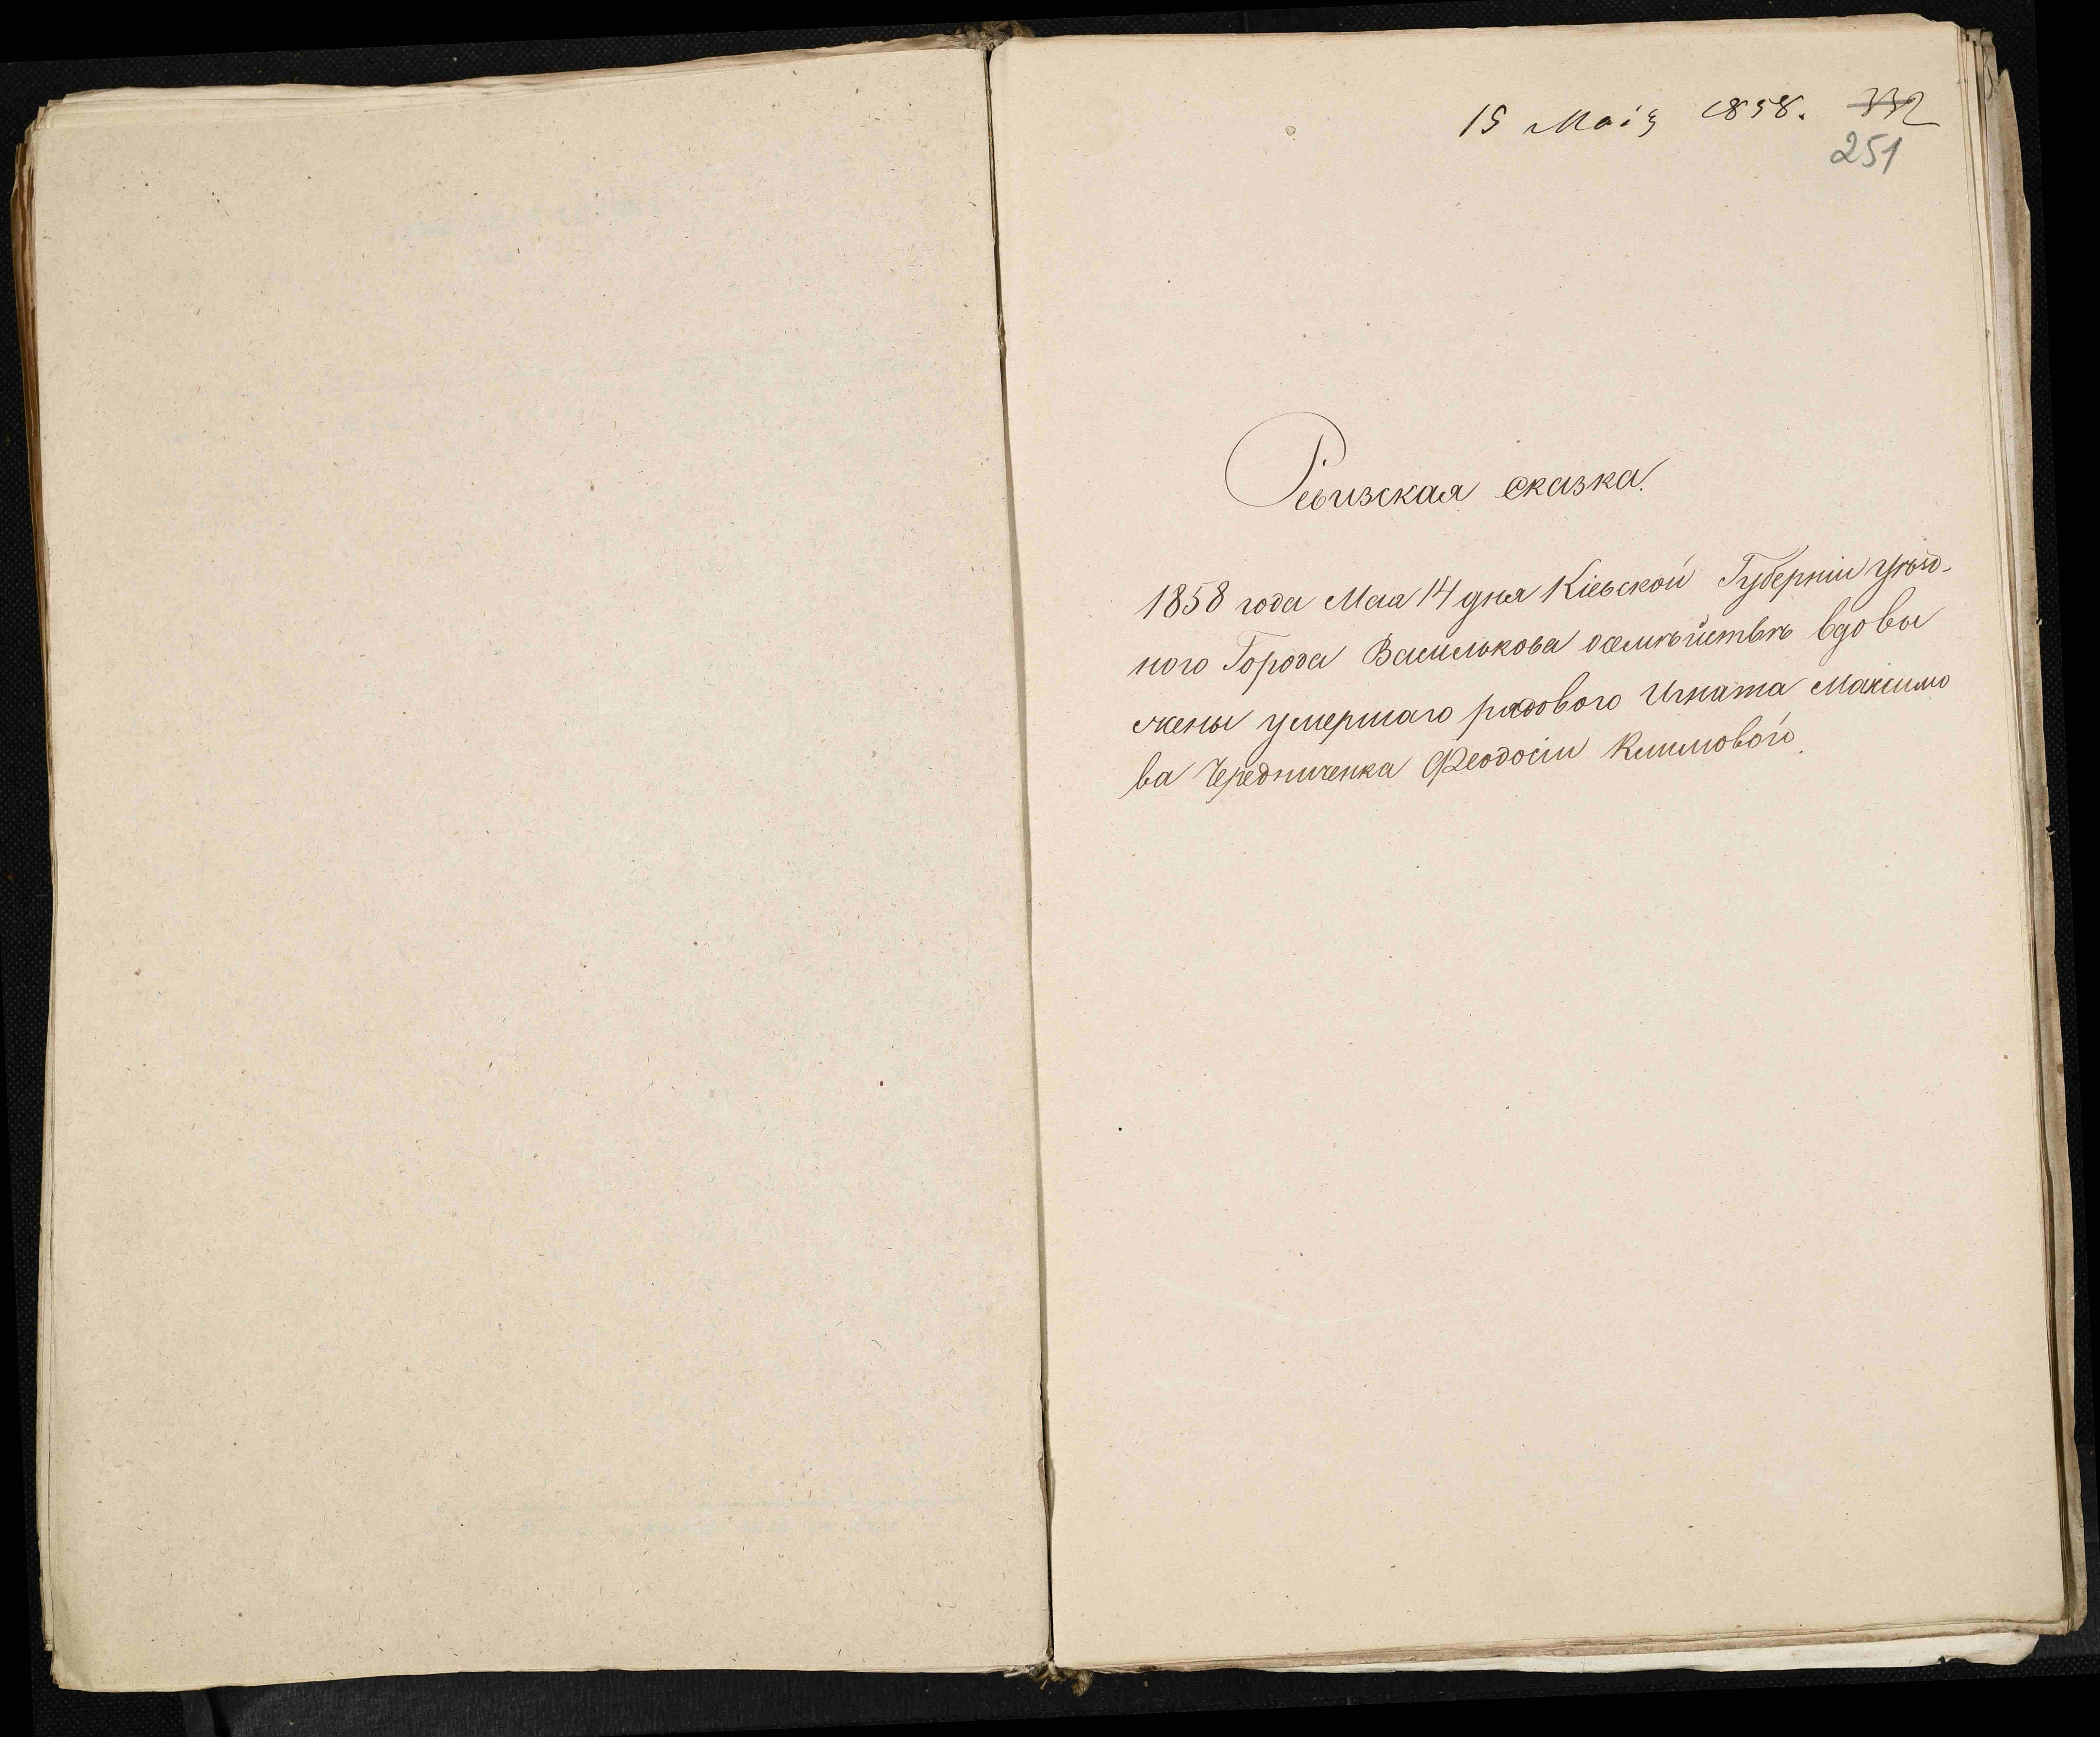 15 Маія 1858. 332
251
Ревизская сказка.
1858 года Мая 14 дня Кіевской Губерніи уѣзд-
ного Города Василькова осемѣйствѣ вдовы
жены умершаго рядового Игната Максимо
ва Чередниченка Феодосіи Климовой.